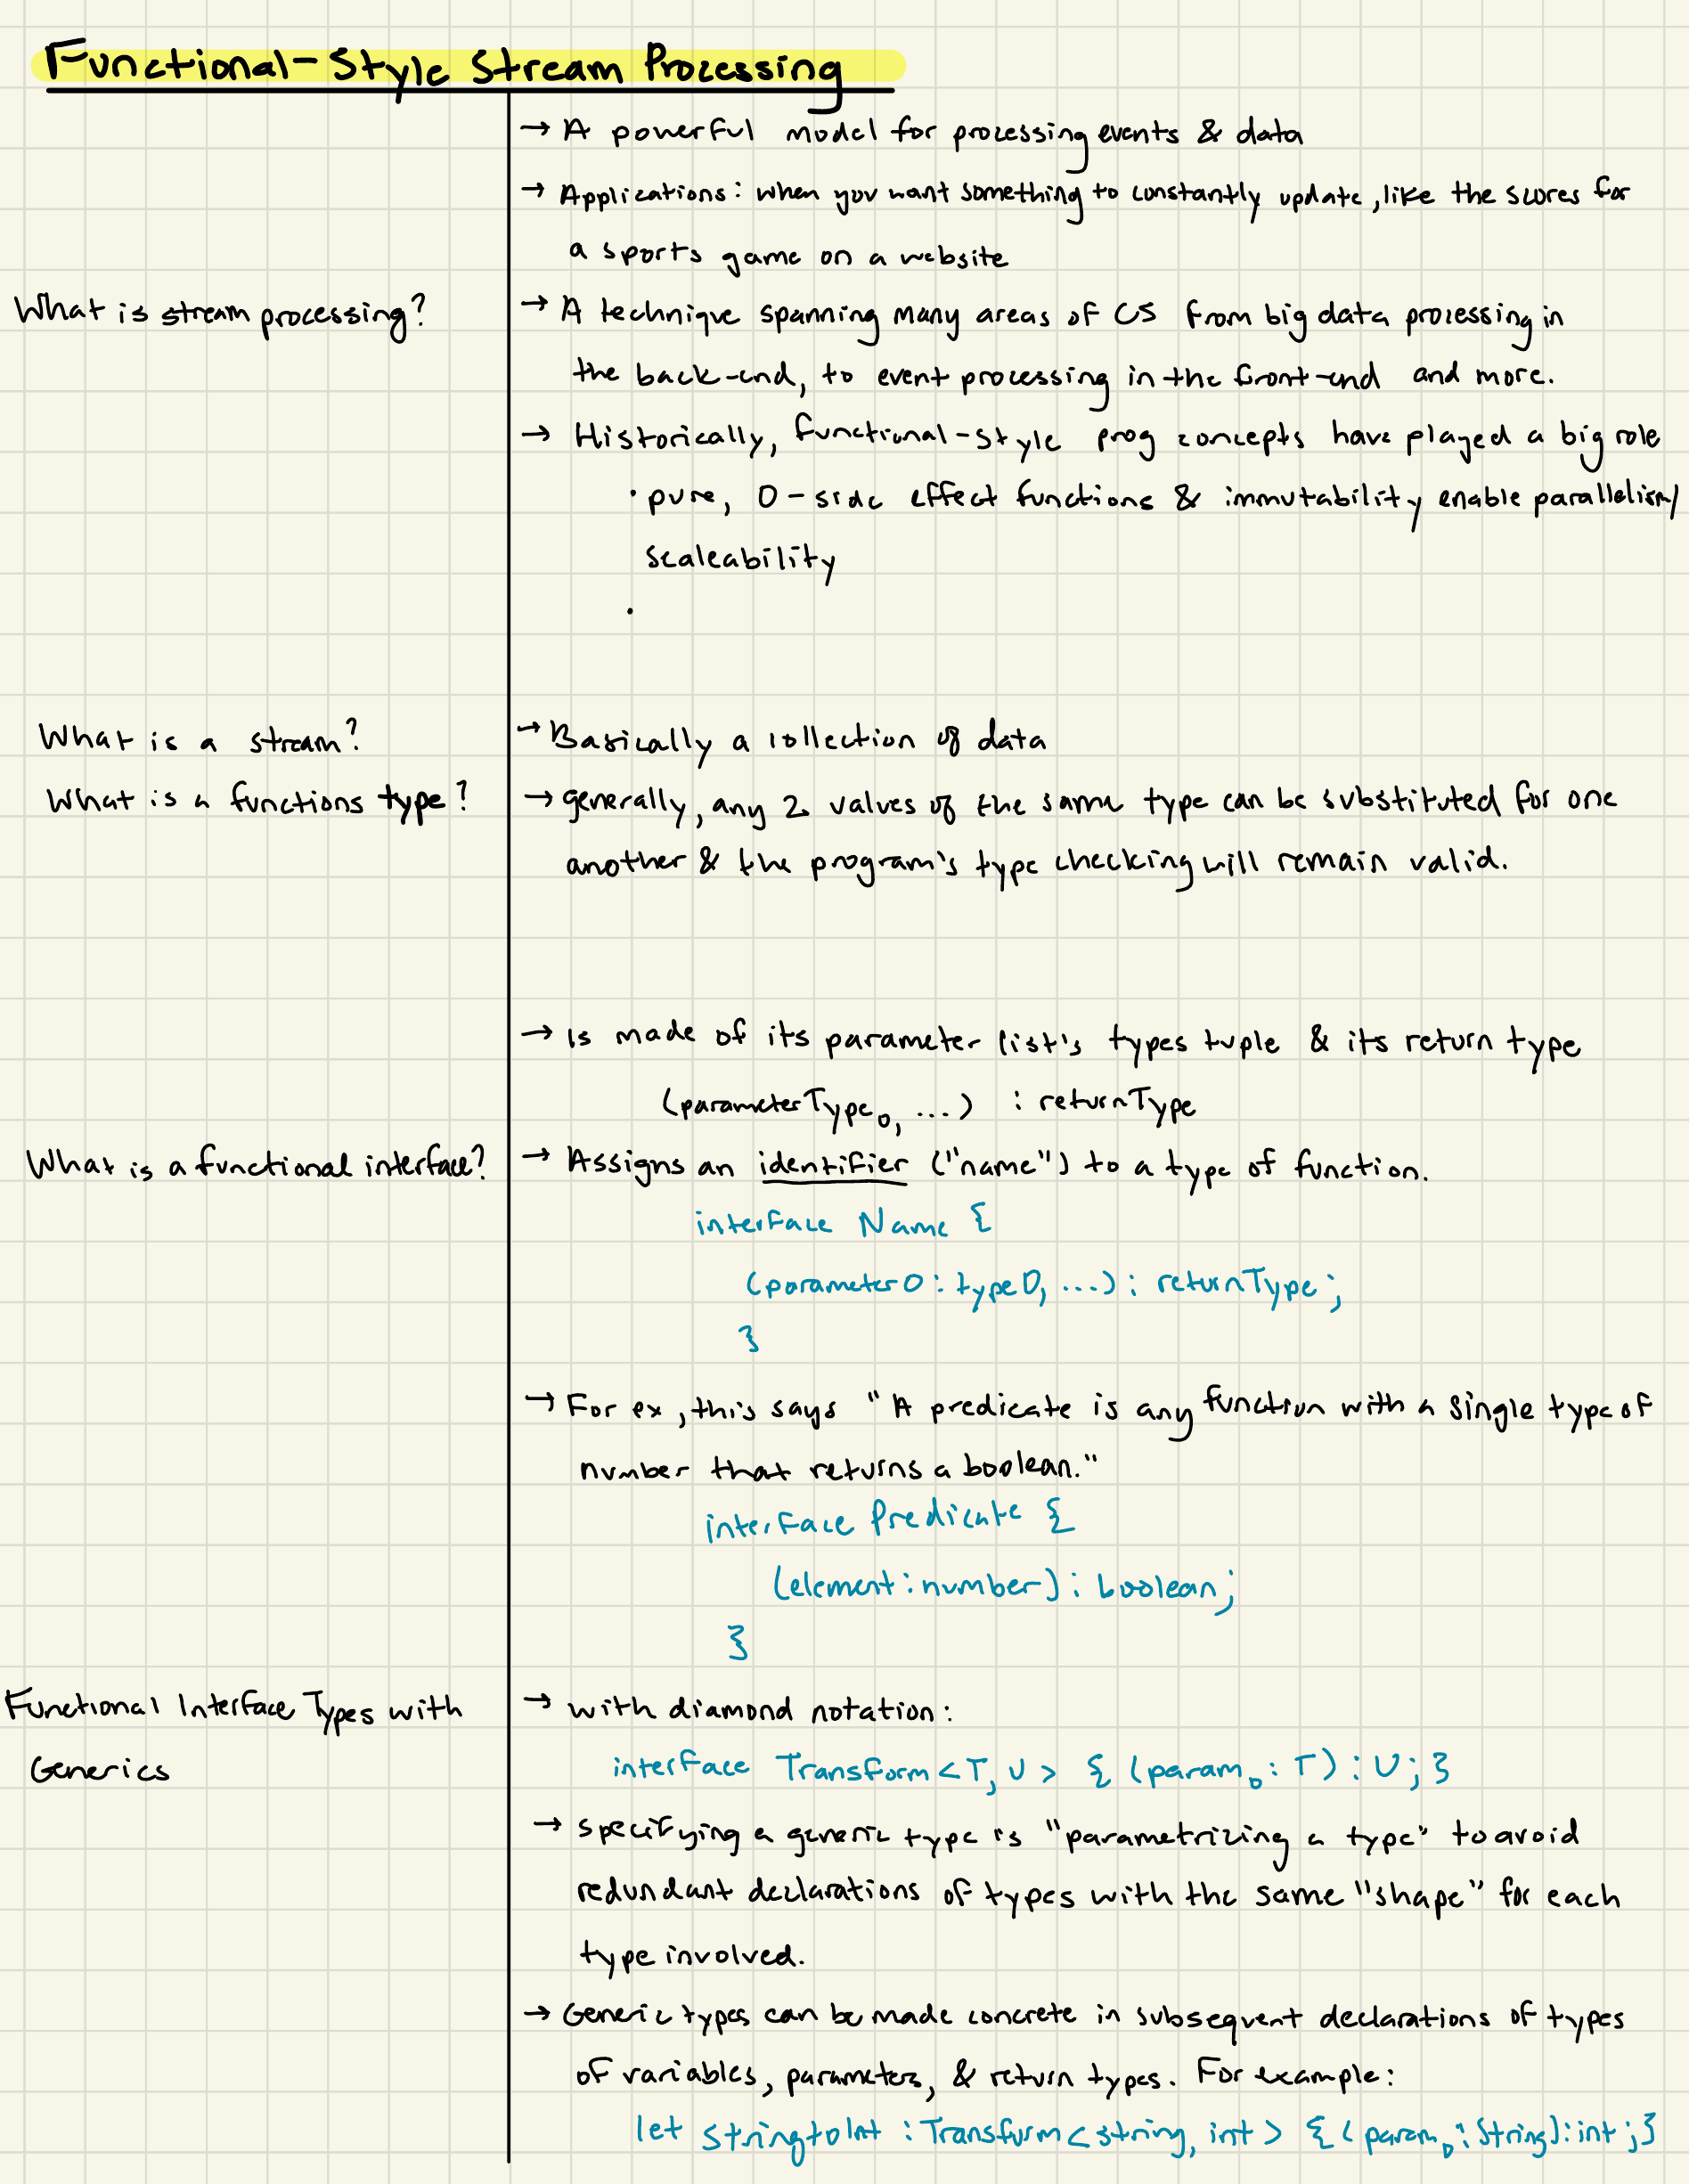 Functional-Style Stream Processing
→ A powerful model for processing events & data
→ Applications: when you want something to constantly update, like the scores for
a sports game on a website
What is stream processing?
→ A technique spanning many areas of CS from big data processing in
the back-end, to event processing in the front-end and more.
→ Historically, functional-style prog concepts have played a big role
· pure, 0-side effect functions & immutability enable parallelism/
scaleability
·
What is a stream?
→ Basically a collection of data
What is a functions type?
→ generally, any 2 values of the same type can be substituted for one
another & the program's type checking will remain valid.
→ Is made of its parameter list's types tuple & its return type
(parameterType₀, ...) : returnType
What is a functional interface?
→ Assigns an identifier ("name") to a type of function.
interface Name {
(parameter0: type0, ...): returnType;
}
→ For ex, this says "A predicate is any function with a single type of
number that returns a boolean."
interface Predicate {
(element: number): boolean;
}
Functional Interface Types with
Generics
→ with diamond notation:
interface Transform<T, U> { (param₀: T): U; }
→ specifying a generic type is "parametrizing a type" to avoid
redundant declarations of types with the same "shape" for each
type involved.
→ Generic types can be made concrete in subsequent declarations of types
of variables, parameters, & return types. For example:
let StringtoInt : Transform<string, int> { (param₀: String): int; }